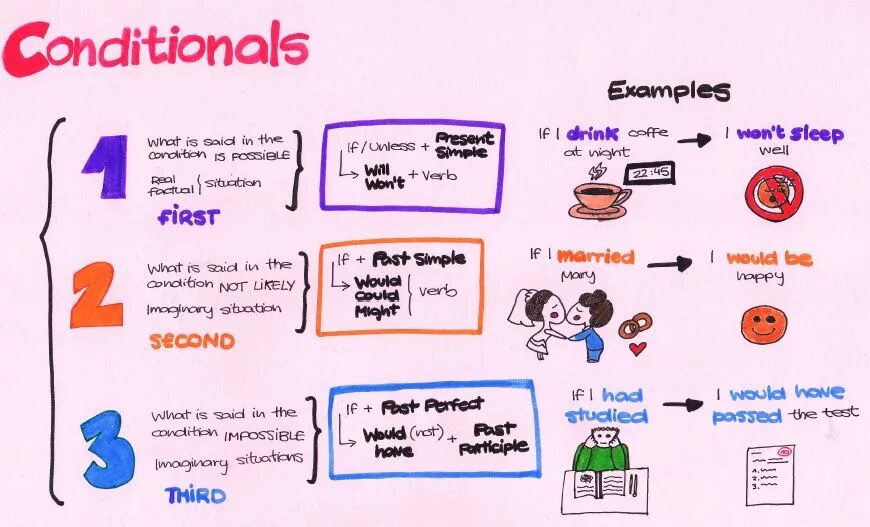 Conditionals
Examples
1
What is said in the
condition IS POSSIBLE
Real
factual
situation
FIRST
If / Unless + Present
Simple
Will
Won't
+ verb
If I drink coffe
at night
22:45
I won't sleep
well
2
What is said in the
condition NOT LIKELY
Imaginary situation
SECOND
If + Past Simple
Would
Could
Might
verb
If I married
Mary
I would be
happy
3
What is said in the
condition IMPOSSIBLE
Imaginary situations
THIRD
If + Past Perfect
Would (not) + Past
have Participle
If I had
studied
I would have
passed the test
1.
2.
3.